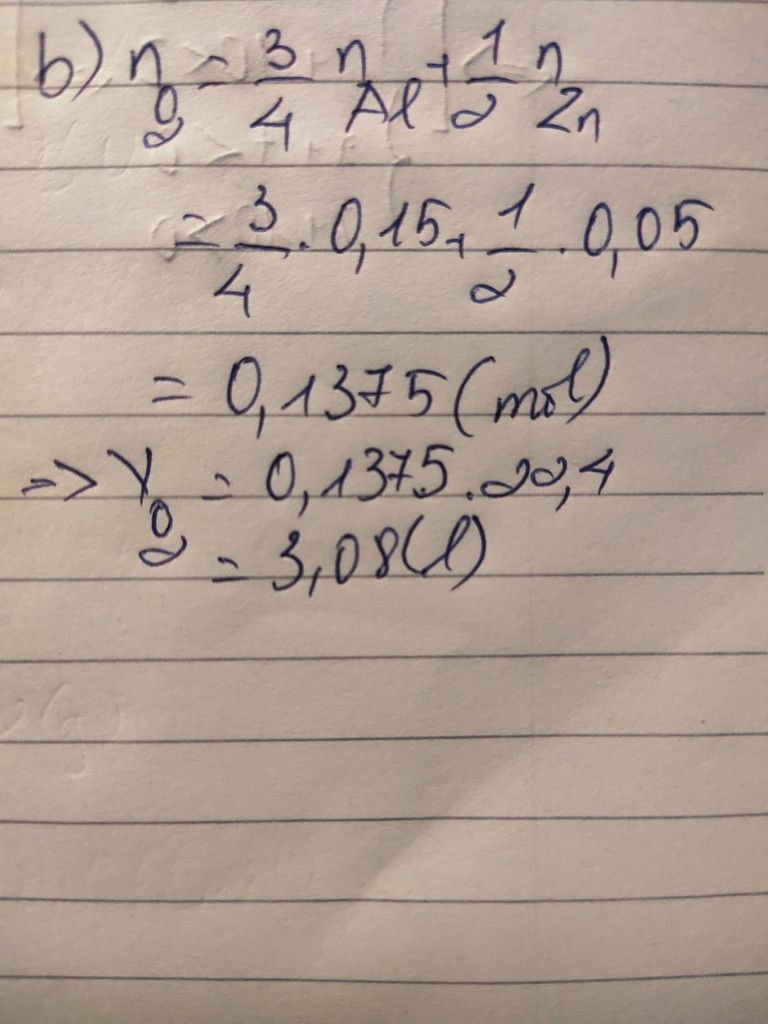 b) n O2 = 3/4 n Al + 1/2 n Zn
= 3/4 . 0,15 + 1/2 . 0,05
= 0,1375 (mol)
=> V O2 = 0,1375 . 22,4
= 3,08 (l)